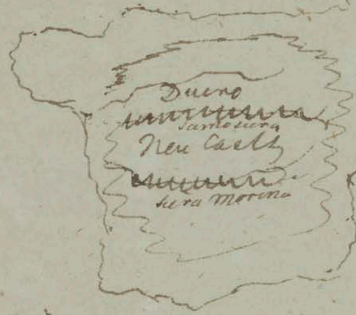 Duero
Samosiera
New Castle
Siera Morina